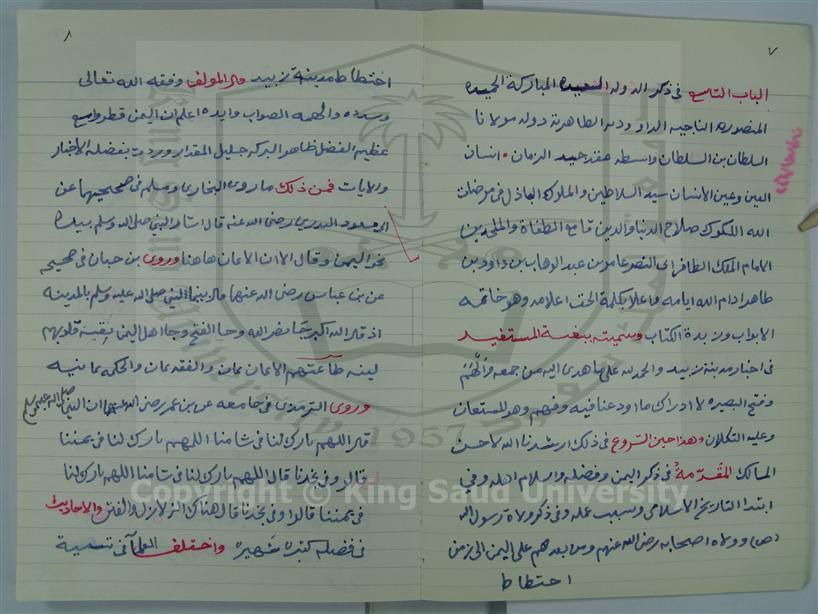 ٧
الباب التاسع في ذكر الدوله السعيده المباركة الحميده
المنصوره الناجيه الداوديه الطاهرية دولة مولانا
السلطان بن السلطان واسطه عقد جيد الزمان انسان
العين وعين الانسان سيد السلاطين والملوك الباذل في مرضات
الله الملوك صلاح الدنيا والدين قامع الطغاة والملحدين
الامام الملك الظافر ابي النصر عامر بن عبد الوهاب بن داود بن
طاهر ادام الله ايامه واعلا بكلمة الحق اعلامه وهو خاتمه
الابواب وزبدة الكتاب وسميته ببغية المستفيد
في اخبار مدينة زبيد والحمد لله على ما هدى اليه من جمعه وألهم
وفتح البصيره لادراك ما اودعنا فيه وفهم وهو المستعان
وعليه التكلان وهذا حين الشروع في ذلك ارشدنا الله لاحسن
المسالك المقدمة في ذكر اليمن وفضله واسلام اهله وفي
ابتدا التاريخ الاسلامي وسبب عمله وفي ذكر ولاة رسول الله
(ص) وولاه اصحابه رضي الله عنهم ومن بعدهم على اليمن الى زمن
احتطاط
٨
اختطاط مدينة زبيد قال المؤلف وفقه الله تعالى
وسدده والهمه الصواب وايده اعلم ان اليمن قطر واسع
عظيم الفضل ظاهر البركه جليل المقدار وردت بفضله الاخبار
والايات فمن ذلك ما روى البخاري ومسلم في صحيحيهما عن
ابي مسعود البدري رضي الله عنه قال اشار النبي صلى الله وسلم بيده
نحو اليمن وقال الا ان الايمان هاهنا وروى بن حبان في صحيحه
عن بن عباس رضي الله عنهما قال بينما النبي صلى الله عليه وسلم بالمدينه
اذ قال الله اكبر جا نصر الله وجا الفتح وجا اهل اليمن نقية قلوبهم
لينه طاعتهم الايمان يمان والفقه يمان والحكمه يمانيه
وروى الترمذي في جامعه عن بن عمر رضي الله عنهما ان النبي صلى الله عليه وسلم
قال اللهم بارك لنا في شامنا اللهم بارك لنا في يمننا
قالوا وفي نجدنا قال اللهم بارك لنا في شامنا اللهم بارك لنا
في يمننا قالوا وفي نجدنا قال هناك الزلازل والفتن والاحاديث
في فضله كثيره شهيره واختلف العلما في تسمية
Copyright © King Saud University
1957